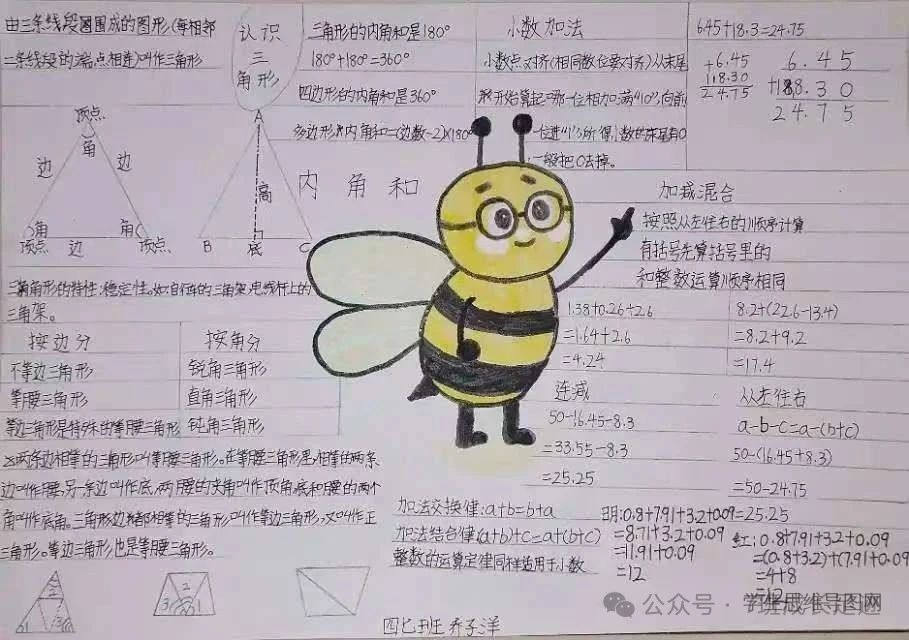 由三条线段围成的图形(每相邻
二条线段的端点相连)叫作三角形
认识
三
角形
三角形的内角和是180°
180°+180°=360°
四边形的内角和是360°
多边形的内角和=(边数-2)×180°
内 角 和
小数加法
小数点对齐(相同数位要对齐)从末尾
位进“1”所得小数的末尾有0
一般把0去掉。
645+18.3=24.75
+6.45
18.30
24.75
6.45
+18.30
24.75
顶点
角
边 边
角 角
顶点 边 顶点
A
高
B 底 C
加减混合
按照从左往右的顺序计算
有括号先算括号里的
和整数运算顺序相同
三角形的特性:稳定性。如自行车的三角架,电线杆上的
三角架。
按边分 按角分
不等边三角形 锐角三角形
等腰三角形 直角三角形
等边三角形是特殊的等腰三角形 钝角三角形
两条边相等的三角形叫等腰三角形。在等腰三角形里,相等的两条
边叫作腰,另一条边叫作底,两腰的夹角叫作顶角,底和腰的两个
角叫作底角。三角形边都相等的三角形叫作等边三角形,又叫作正
三角形。等边三角形也是等腰三角形。
1
2 3
2
3 1
1.38+0.26+2.6
=1.64+2.6
=4.24
8.2+(22.6-13.4)
=8.2+9.2
=17.4
连减
50-16.45-8.3
=33.55-8.3
=25.25
从左往右
a-b-c=a-(b+c)
50-(16.45+8.3)
=50-24.75
=25.25
加法交换律:a+b=b+a
加法结合律(a+b)+c=a+(b+c)
整数的运算定律同样适用于小数
明:0.8+7.91+3.2+0.09
=8.71+3.2+0.09
=11.91+0.09
=12
红:0.8+7.91+3.2+0.09
=(0.8+3.2)+(7.91+0.09
=4+8
=12
四七班 乔子洋
公众号·学生思维导图网